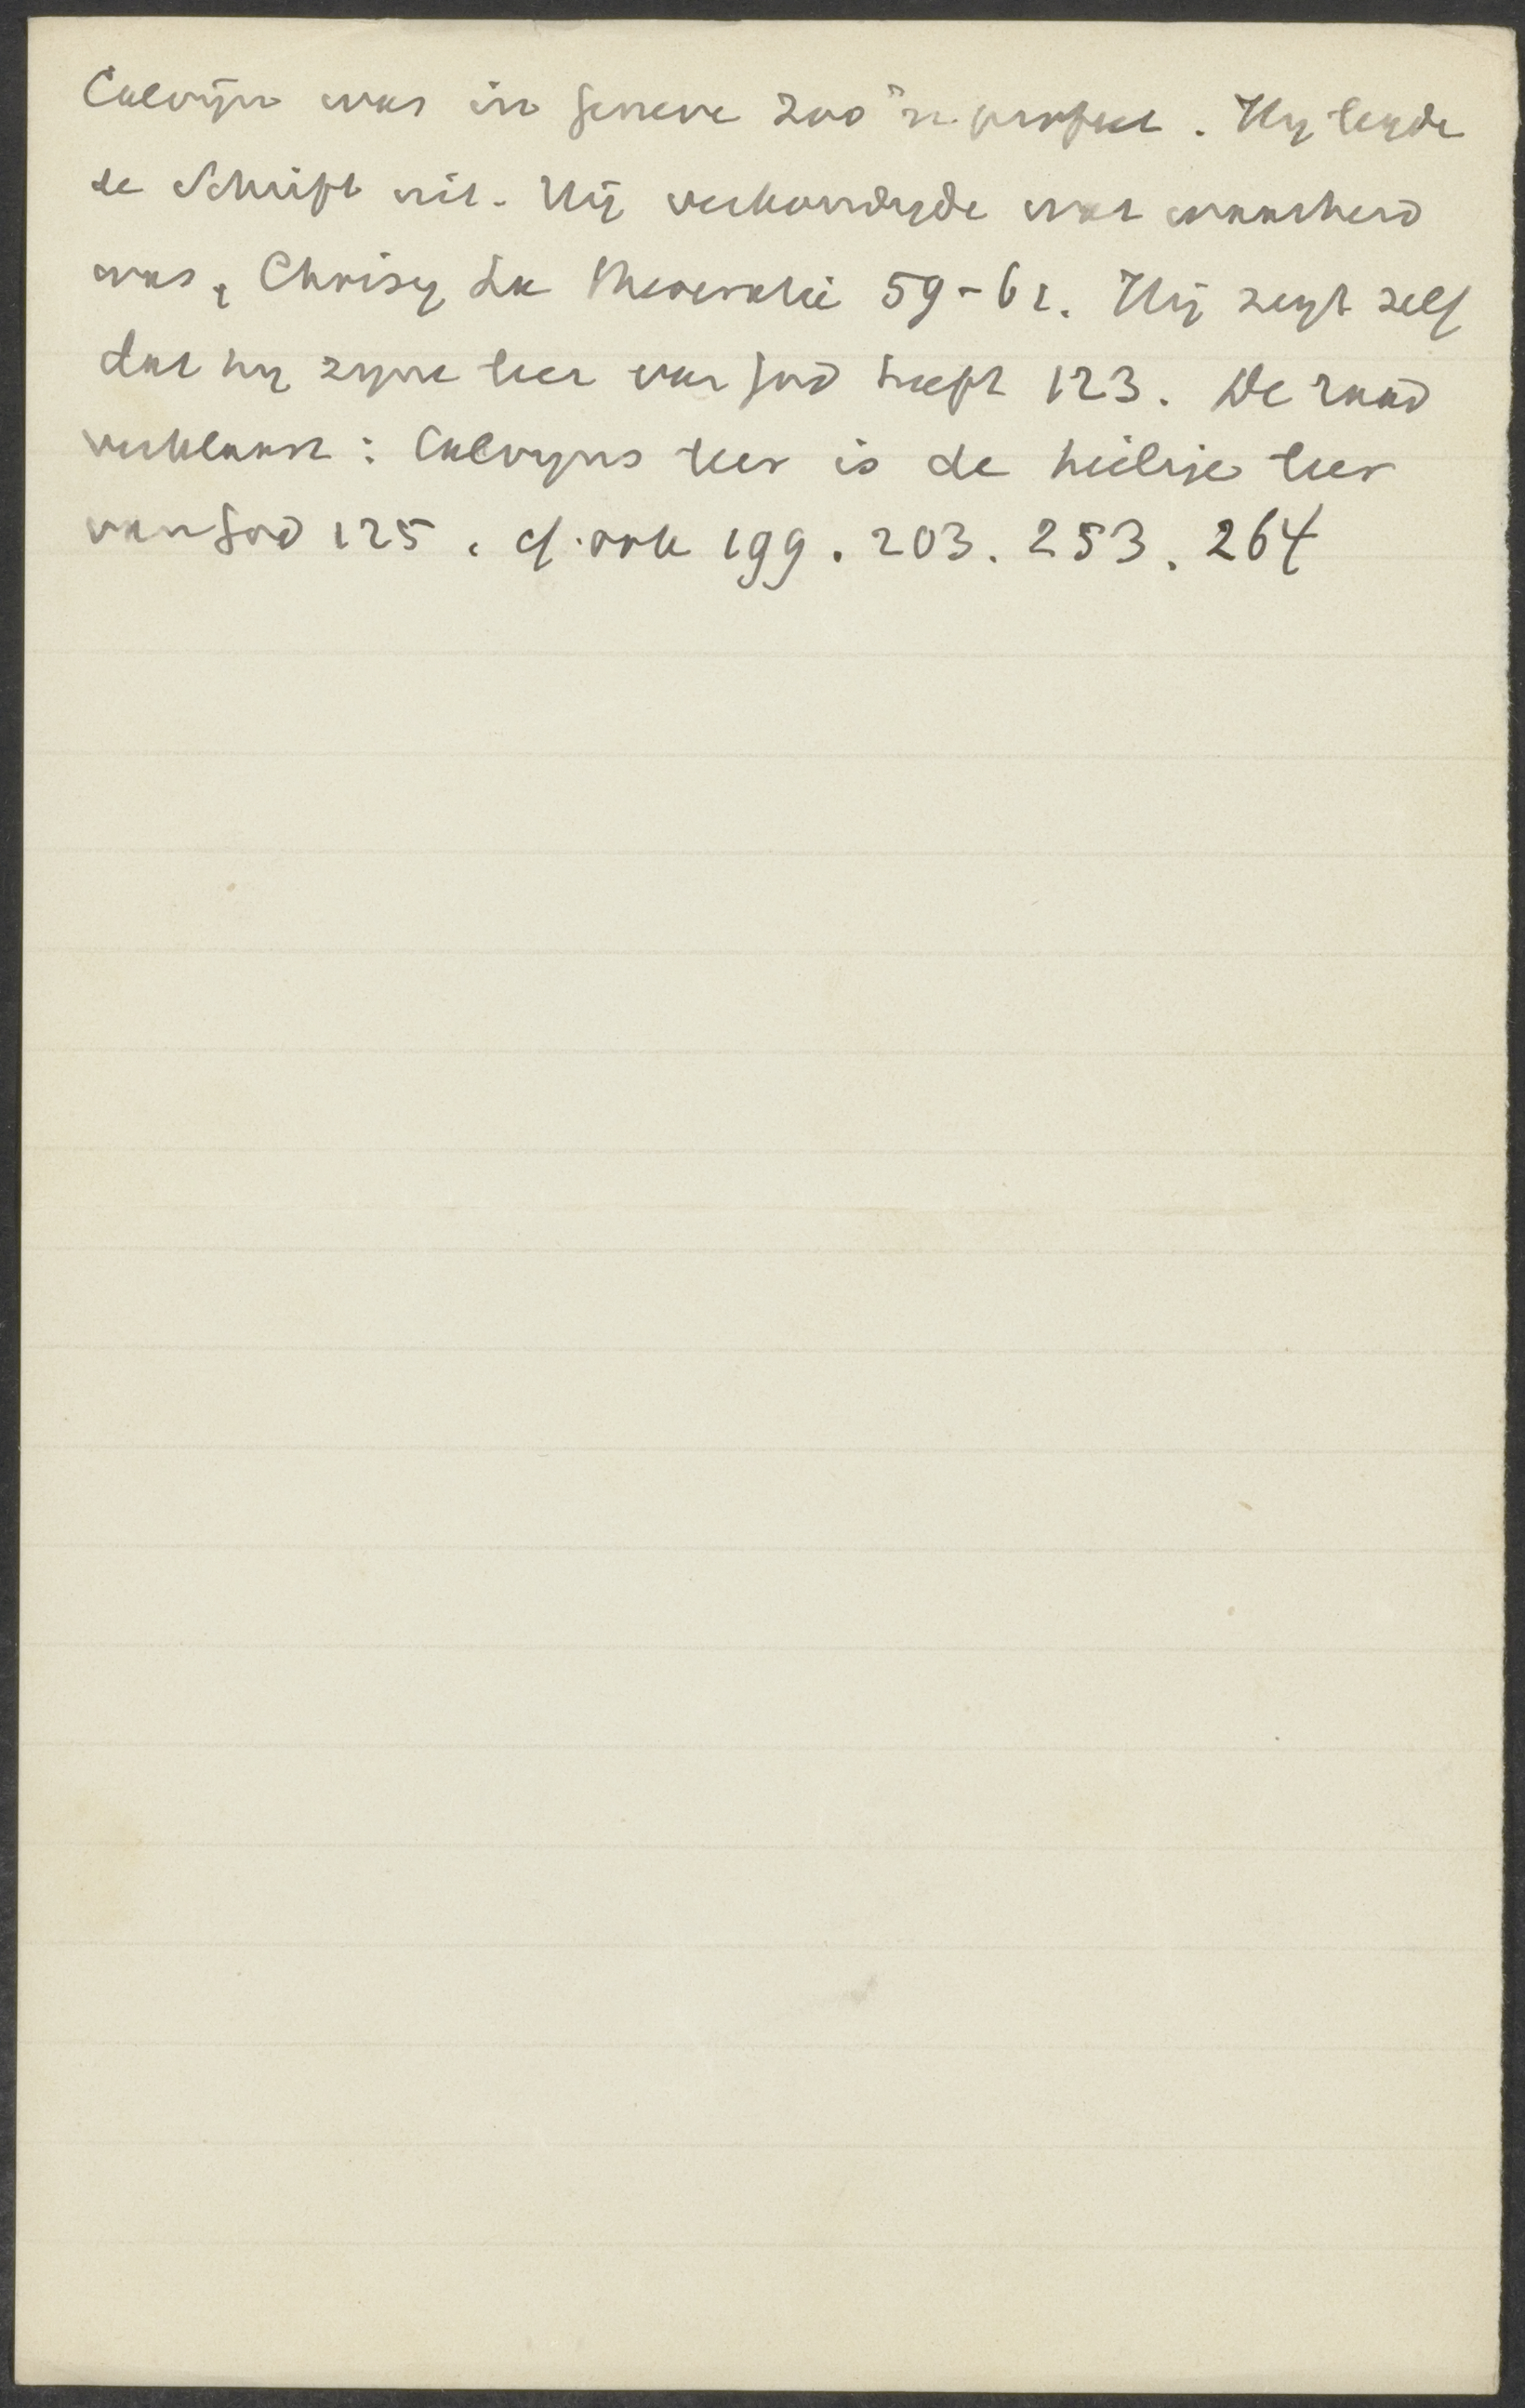 Calvijn was in Geneve zoo'n profeet. Hij legde
de Schrift uit. Hij verkondigde wat waarheid
was, Choisy La Theocratie 59-61. Hij zegt zelf
dat hij zijne leer van God heeft 123. De raad
verklaart: Calvijns leer is de heilige leer
van God 125. cf. ook 199. 203. 253. 264